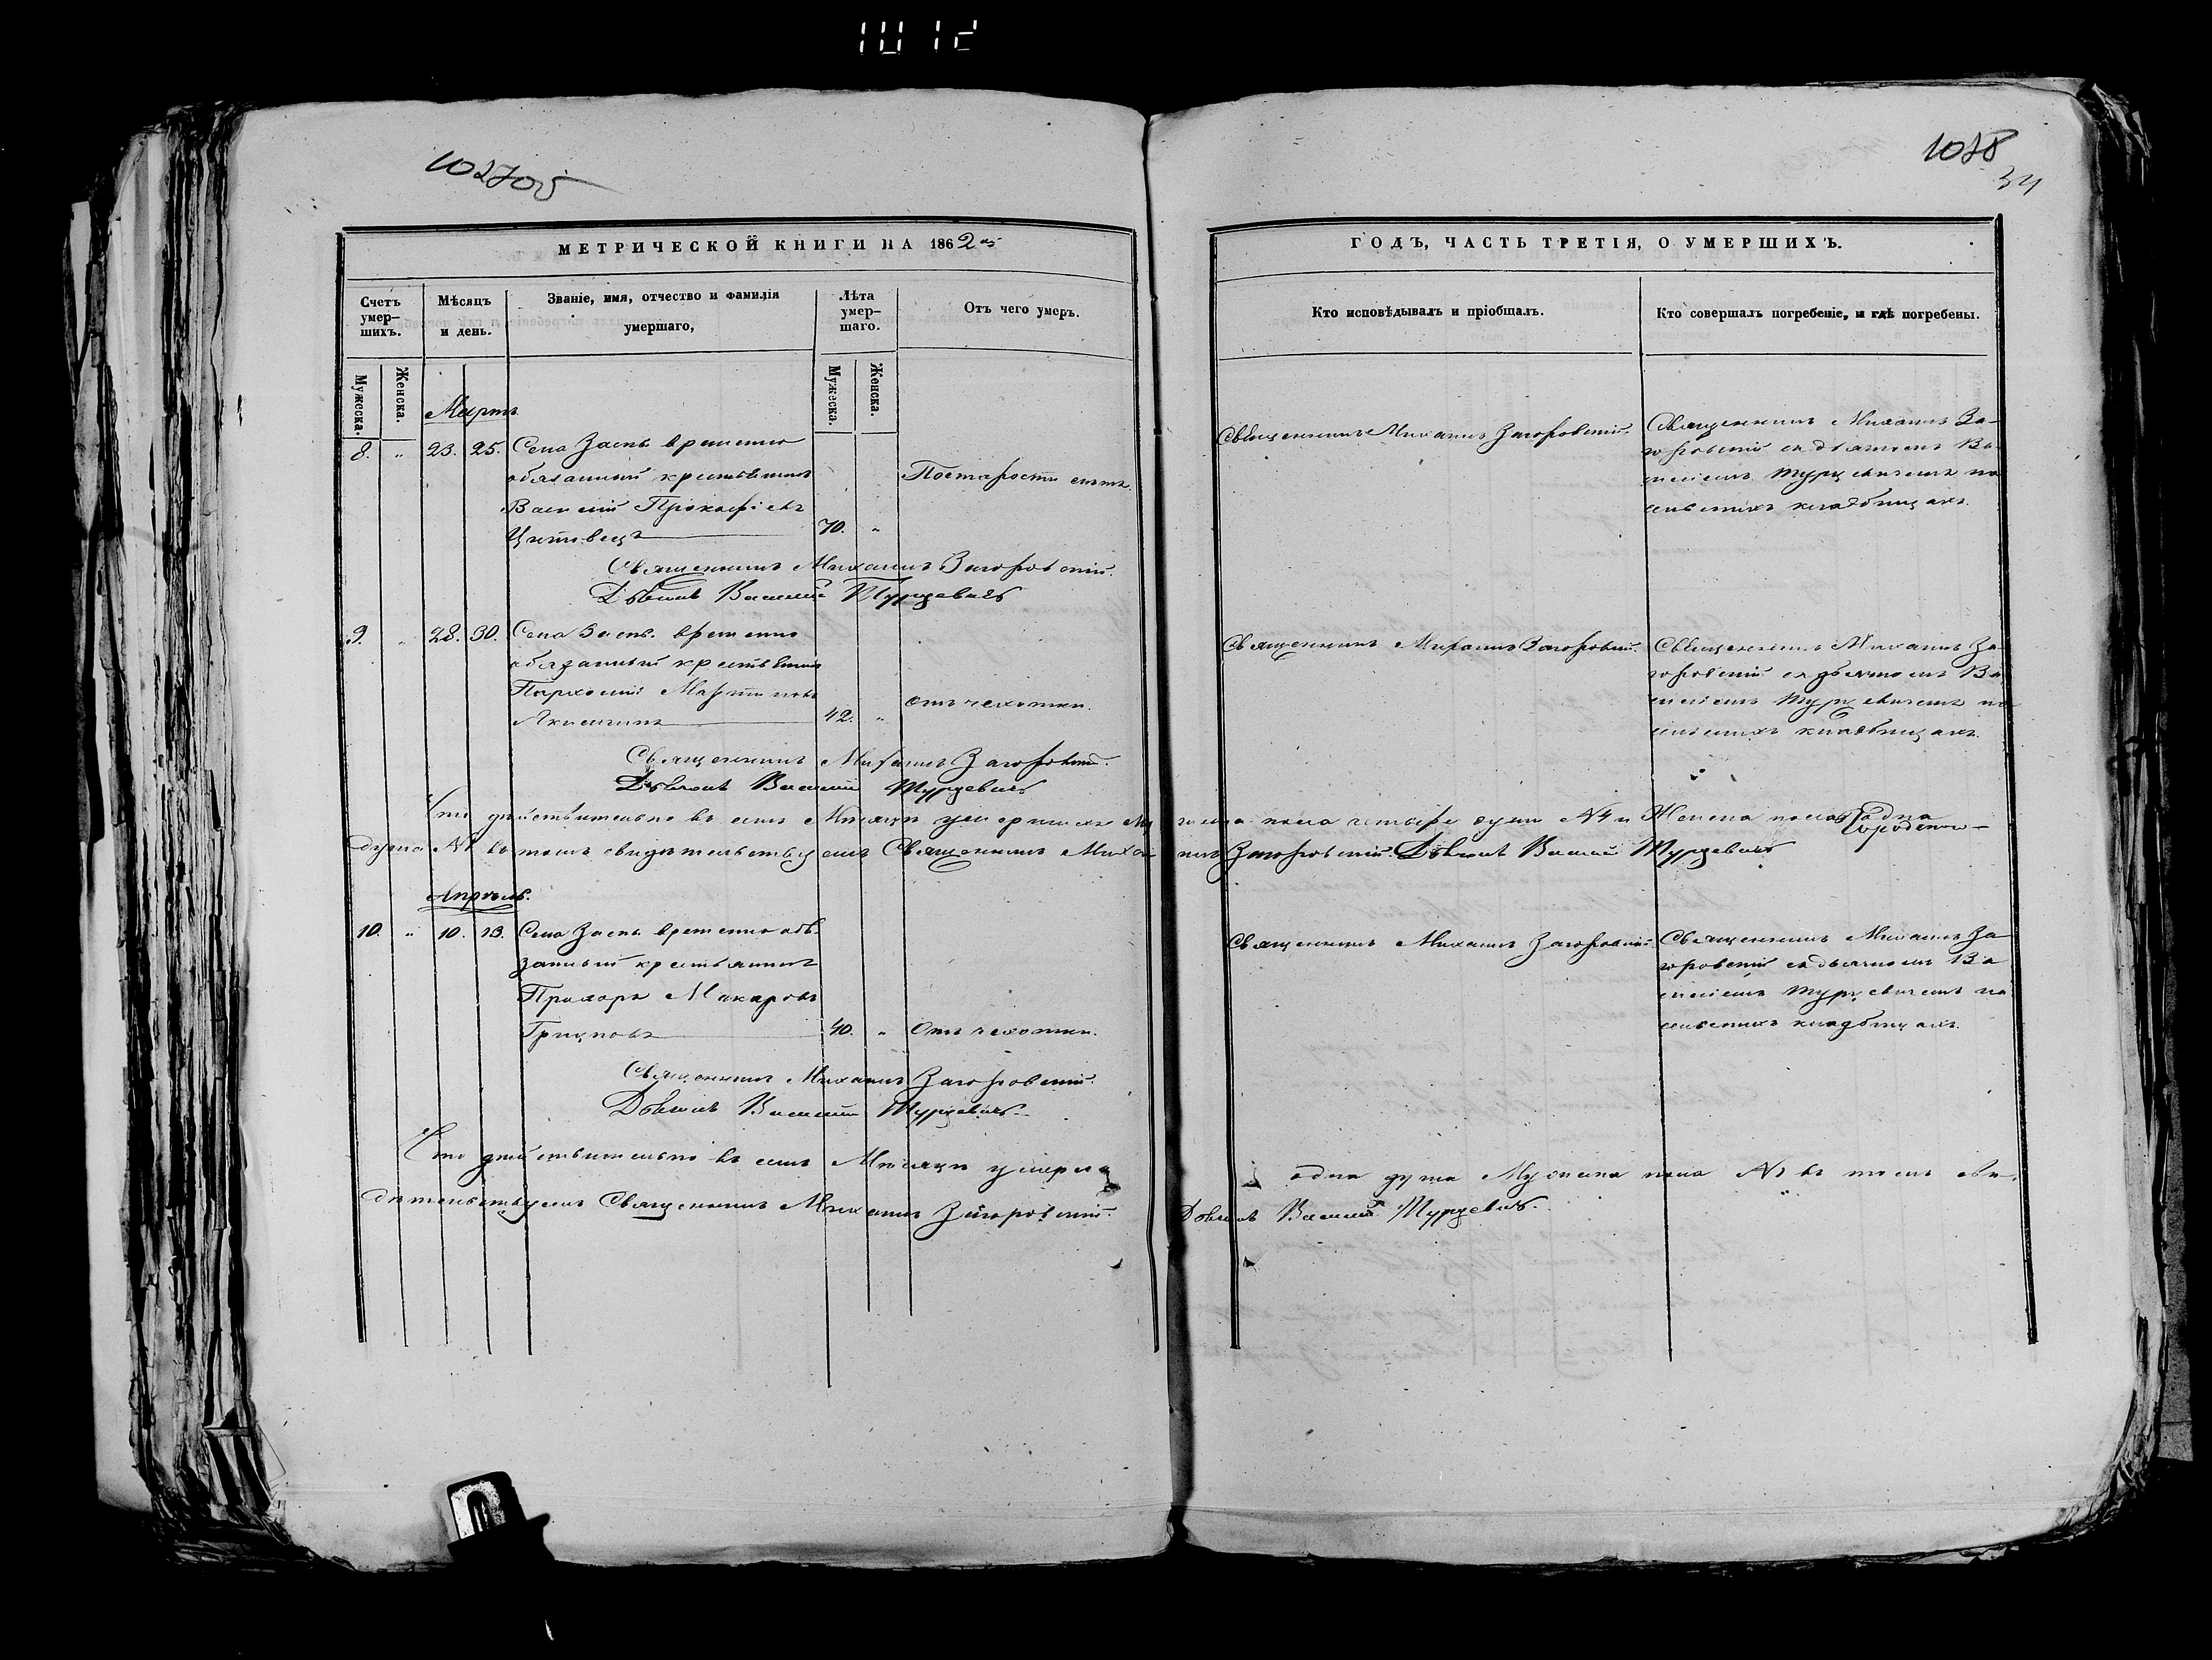 1012
1027об
1028
34
МЕТРИЧЕСКОЙ КНИГИ НА 1862й
ГОДЪ, ЧАСТЬ ТРЕТІЯ, О УМЕРШИХЪ.
Счетъ умер-шихъ.
Мѣсяцъ и день.
Званіе, имя, отчество и фамилія умершаго,
Лѣта умер-шаго.
Отъ чего умеръ.
Кто исповѣдывалъ и пріобщалъ.
Кто совершалъ погребеніе, и гдѣ погребены.
Мужеска.
Женска.
Мужеска.
Женска.
Мартъ
8. „ 23. 25. Села временно
обязанный крестьянинъ
Василій Прокофіевъ
70. „
По старости лѣтъ.
Священникъ Михаилъ Загоровскій.
Священникъ Михаилъ За-
горовскій съ дьячкомъ Ва-
силіемъ Турцевичемъ на
сельскихъ кладбищахъ.
Священникъ Михаилъ Загоровскій.
Дьячокъ Василій Турцевичъ
9. „ 28. 30. Села временно
обязанный крестьянинъ
Мартиновъ
42. „
отъ чахотки.
Священникъ Михаилъ Загоровскій.
Священникъ Михаилъ За-
горовскій съ дьячкомъ Ва-
силіемъ Турцевичемъ на
сельскихъ кладбищахъ.
Священникъ Михаилъ Загоровскій.
Дьячокъ Василій Турцевичъ
Что дѣйствительно въ семъ Мѣсяцѣ умершихъ Мужеска пола четыре души №4 и Женска пола одна
душа №1 въ томъ свидѣтельствуемъ Священникъ Михаилъ Загоровскій. Дьячокъ Василій Турцевичъ
Апрѣль.
10. „ 10. 13. Села временно обя-
занный крестьянинъ
Прохоръ Макаровъ
40. „ Отъ чахотки.
Священникъ Михаилъ Загоровскій.
Священникъ Михаилъ За
горовскій съ дьячкомъ Ва
силіемъ Турцевичемъ на
сельскихъ кладбищахъ.
Священникъ Михаилъ Загоровскій.
Дьячокъ Василій Турцевичъ
Что дѣйствительно въ семъ Мѣсяцѣ умерла одна душа Мужеска пола №1 въ томъ сви-
дѣтельствуемъ Священникъ Михаилъ Загоровскій. Дьячокъ Василій Турцевичъ.